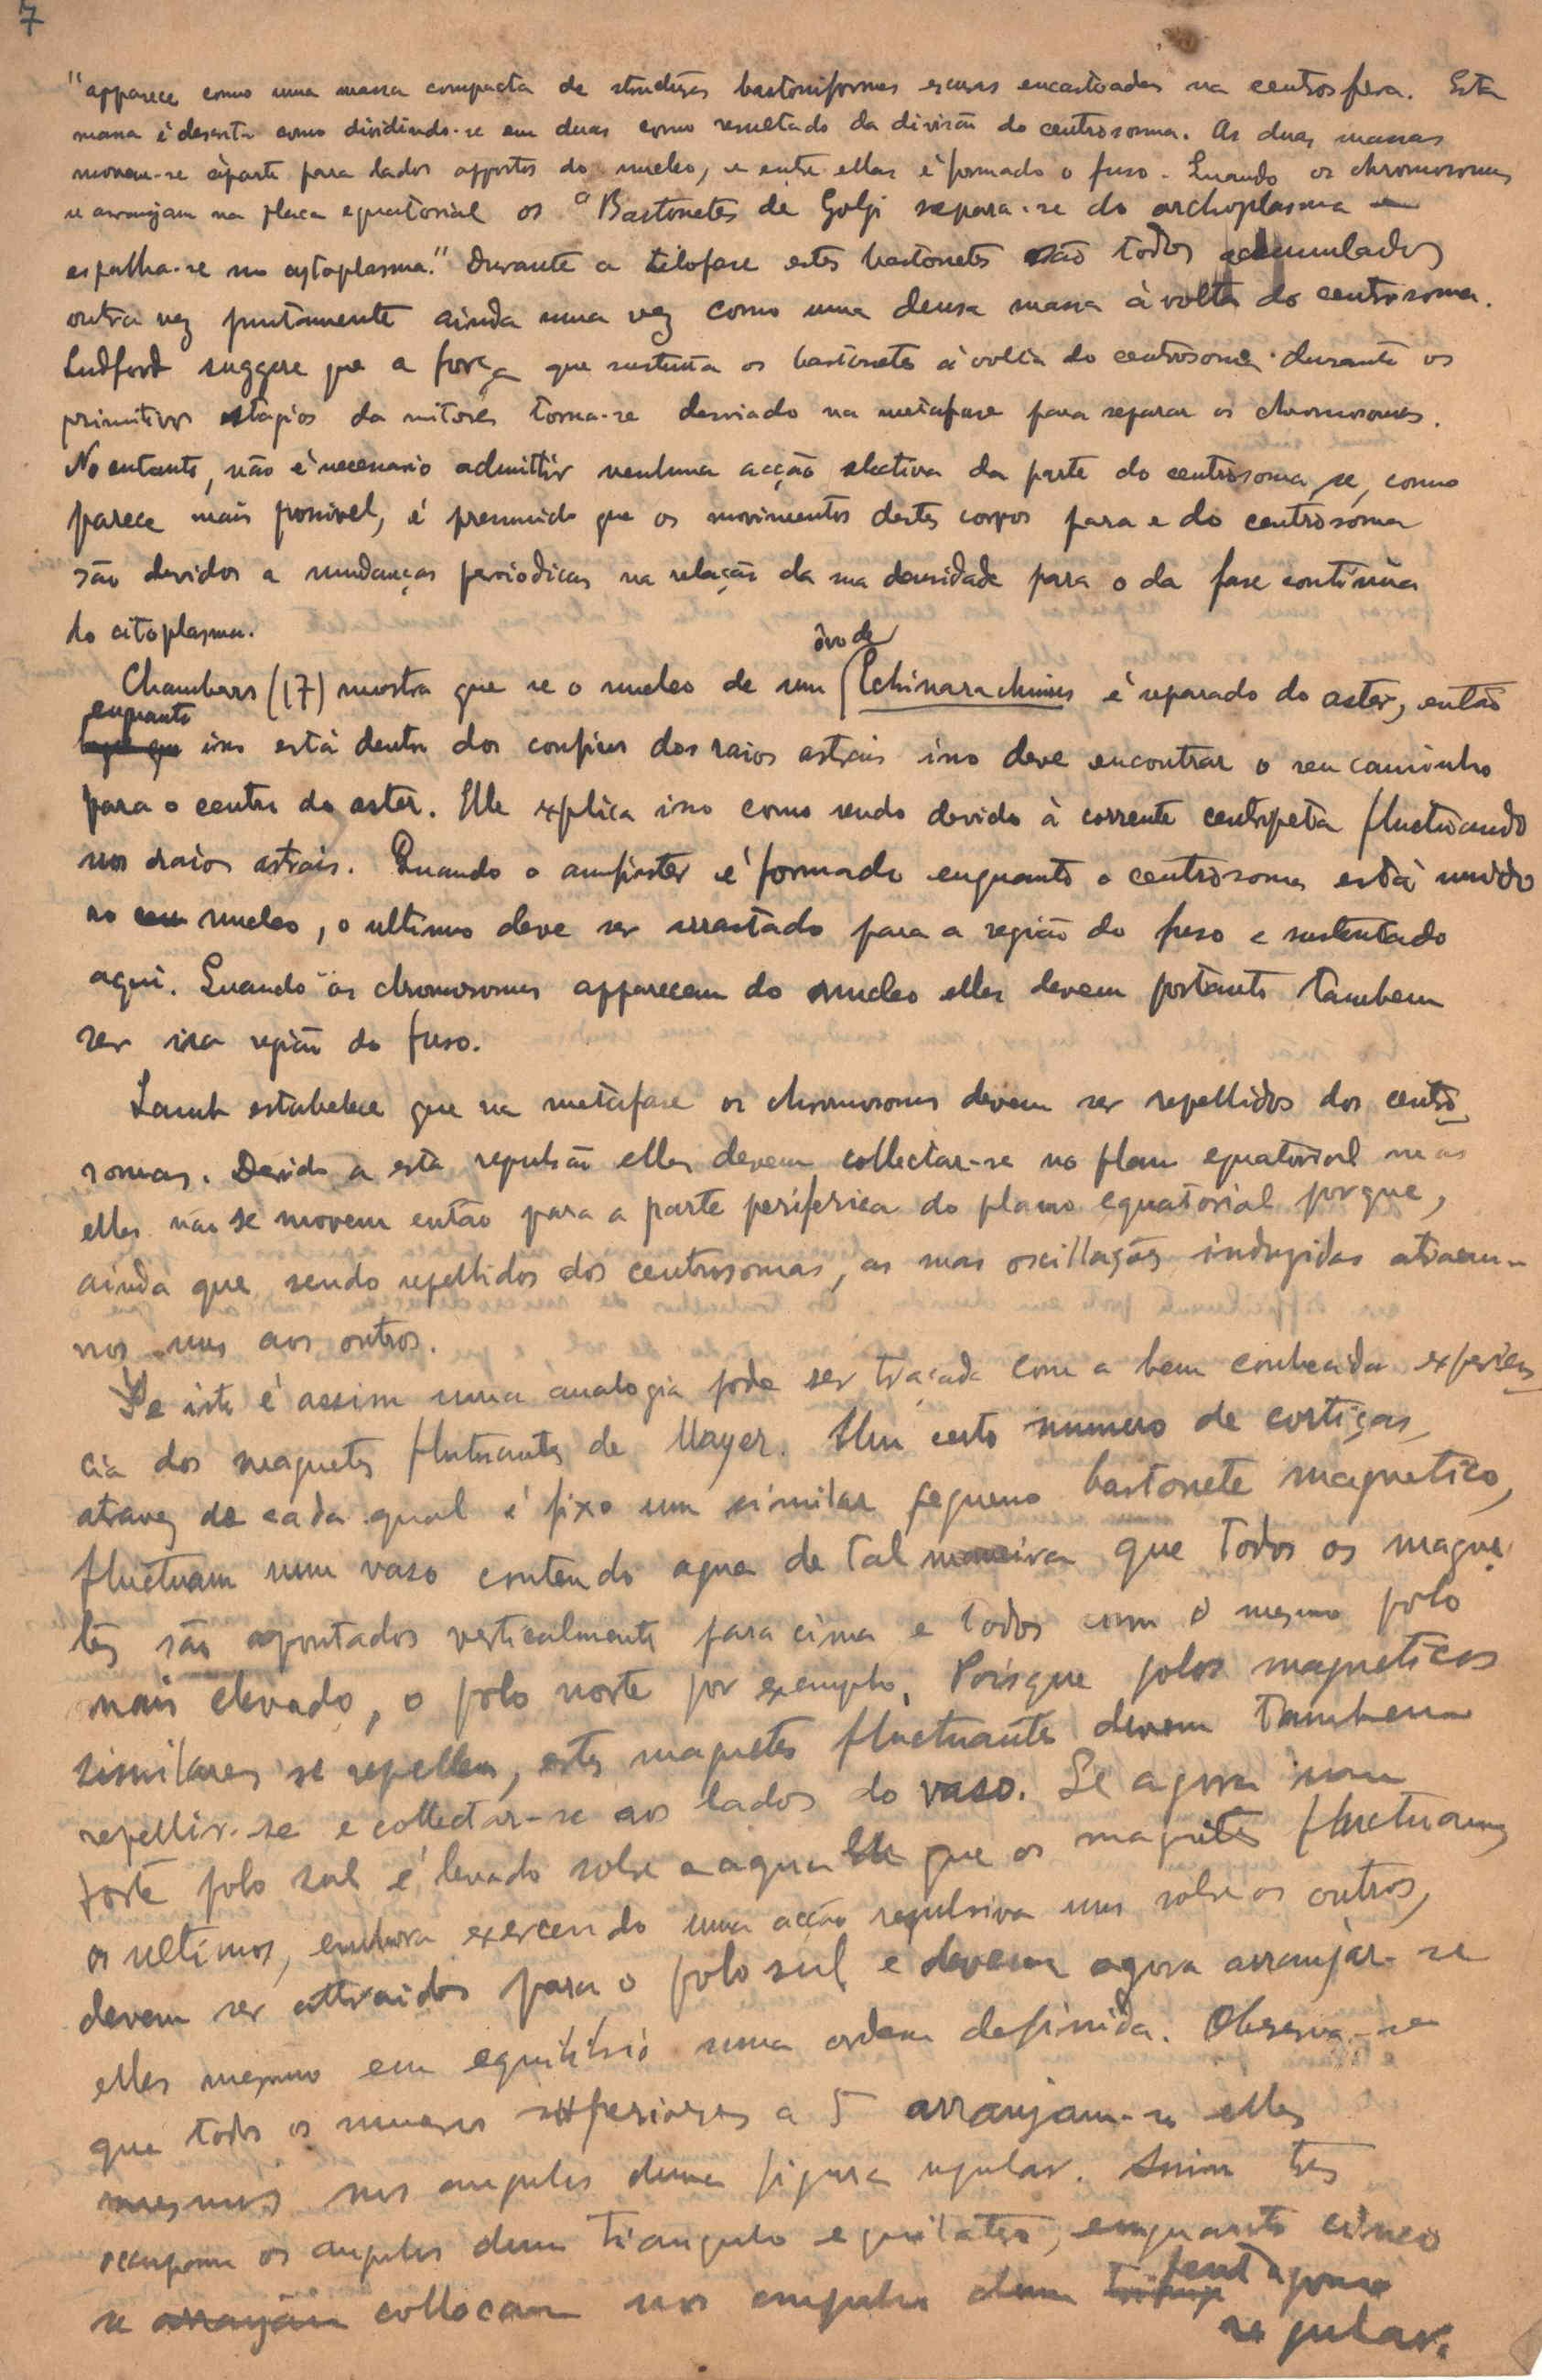 7
"apparece como uma massa compacta de structuras bastoniformes escuras encastoadas na centrosfera. Esta
massa é descrita como dividindo-se em duas como resultado da divisão do centrosoma. As duas massas
movem-se áparte para lados oppostos do nucleo, e entre ellas é formado o fuso. Quando os chromosomas
se arranjam na placa equatorial os "Bastonetes de Golgi separa-se do archoplasma e
espalha-se no cytoplasma." Durante a telofase estes bastonetes são todos accumulados
outra vez juntamente ainda uma vez como uma densa massa à volta do centrosoma.
Ludford suggere que a força que sustenta os bastonetes à volta do centrosoma durante os
primitivos estagios da mitoses torna-se desviado na metafase para separar os chromosomas.
No entanto, não é necessario admittir nenhuma acção electiva da parte do centrosoma, se, como
parece mais possivel, é presumido que os movimentos destes corpos para e do centrosoma
são devidos a mudanças periodicas na relação da sua densidade para o da fase contínua
do citoplasma.
Chambers (17) mostra que se o nucleo de um ovo de Echinarachnius é separado do aster, então
enquanto isso está dentro dos confins dos raios astrais isso deve encontrar o seu caminho
para o centro do aster. Elle explica isso como sendo devido à corrente centripeta fluctuando
nos raios astrais. Quando o amfiaster é formado enquanto o centrosoma está unido
ao nucleo, o ultimo deve ser arrastado para a região do fuso e sustentado
aqui. Quando os chromosomas apparecem do nucleo elles devem portanto tambem
ser na região do fuso.
Lamb estabelece que na metafase os chromosomas devem ser repellidos dos centro
somas. Devido a esta repulsão elles devem collectar-se no plano equatorial mas
elles não se movem então para a parte periferica do plano equatorial porque,
ainda que sendo repellidos dos centrosomas, as suas oscillações induzidas atraem-
nos uns aos outros.
Se isto é assim uma analogia pode ser traçada com a bem conhecida experien
cia dos magnetes flutuantes de Mayer. Um certo numero de cortiças,
atravez de cada qual é fixo um similar pequeno bastonete magnetico,
fluctuam num vaso contendo agua de tal maneira que todos os magne
tes são apontados verticalmente para cima e todos com o mesmo polo
mais elevado, o polo norte por exemplo. Poisque polos magneticos
similares se repellem, estes magnetes fluctuantes devem tambem
repellir-se e collectar-se aos lados do vaso. Se agora num
forte polo sul é levado sobre a agua em que os magnetes fluctuam,
os ultimos, embora exercendo uma acção repulsiva uns sobre os outros,
devem ser attraidos para o polo sul e devem agora arranjar-se
elles mesmo em equilibrio numa ordem definida. Observa-se
que todos os numeros inferiores a 5 arranjam-se elles
mesmos nos angulos duma figura regular. Assim tres
occupam os angulos dum triangulo equilatero, enquanto cinco
se collocam nos angulos dum pentagono
regular.